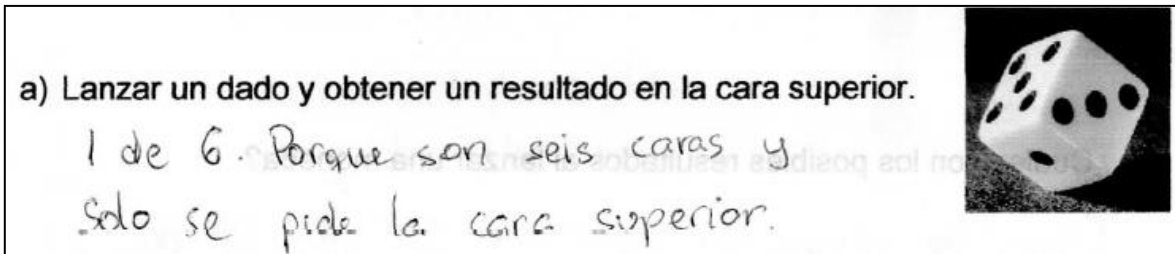 a) Lanzar un dado y obtener un resultado en la cara superior.
1 de 6. Porque son seis caras y
solo se pide la cara superior.